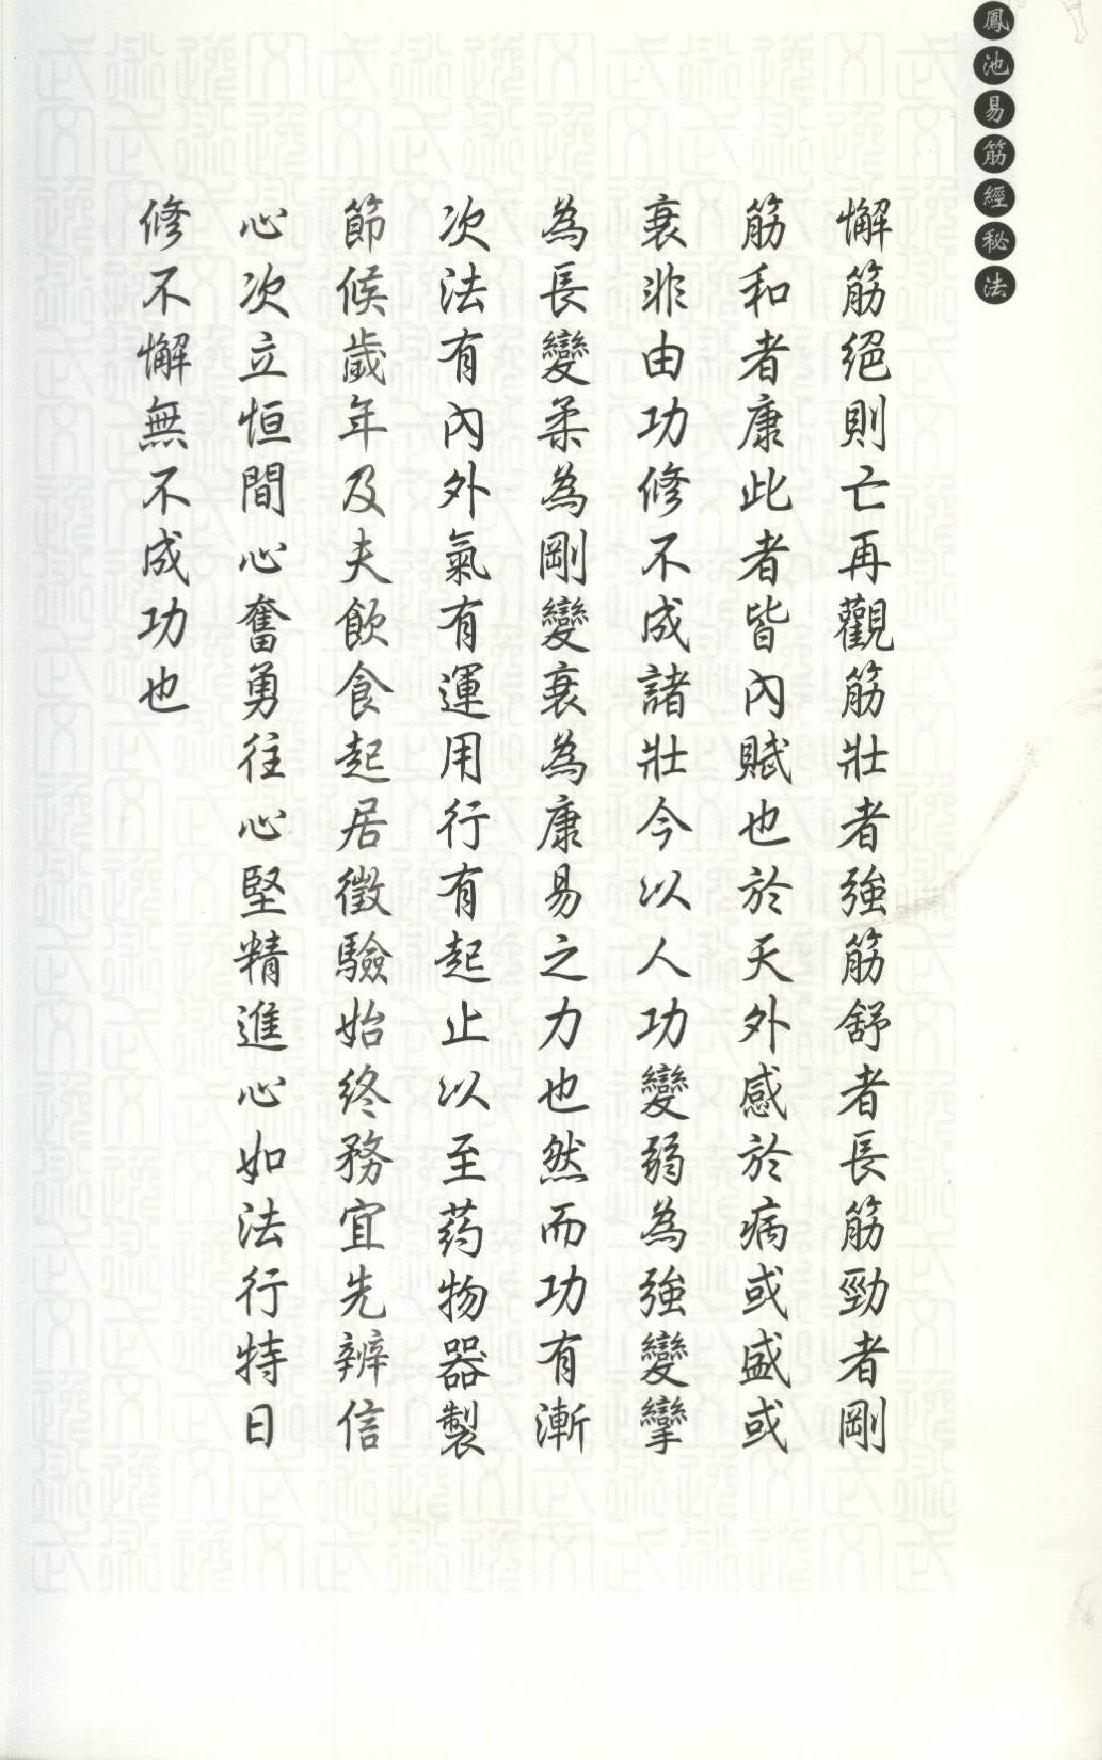 鳳池易筋經秘法
懈筋絕則亡再觀筋壯者強筋舒者長筋勁者剛
筋和者康此者皆內賦也於天外感於病或盛或
衰非由功修不成諸壯今以人功變弱為強變攣
為長變柔為剛變衰為康易之力也然而功有漸
次法有內外氣有運用行有起止以至药物器製
節候歲年及夫飲食起居徵驗始終務宜先辨信
心次立恒間心奮勇往心堅精進心如法行特日
修不懈無不成功也